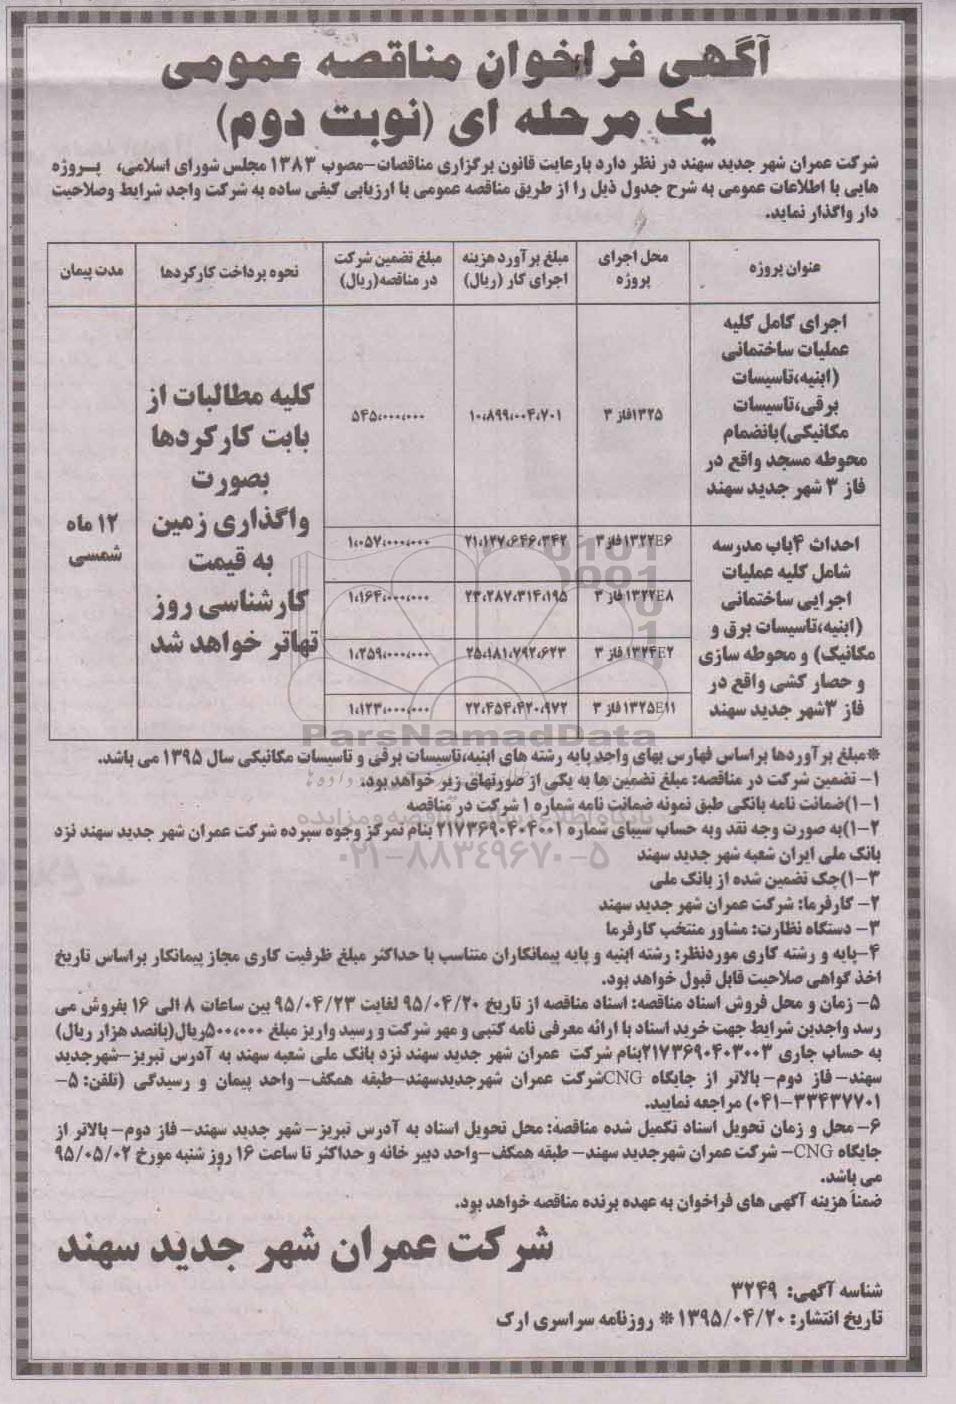 آگهی فراخوان مناقصه عمومی
یک مرحله ای (نوبت دوم)
شرکت عمران شهر جدید سهند در نظر دارد بارعایت قانون برگزاری مناقصات-مصوب ۱۳۸۳ مجلس شورای اسلامی، پروژه
هایی با اطلاعات عمومی به شرح جدول ذیل را از طریق مناقصه عمومی با ارزیابی کیفی ساده به شرکت واجد شرایط وصلاحیت
دار واگذار نماید.
عنوان پروژه
محل اجرای پروژه
مبلغ برآورد هزینه اجرای کار (ریال)
مبلغ تضمین شرکت در مناقصه(ریال)
نحوه پرداخت کارکردها
مدت پیمان
اجرای کامل کلیه
عملیات ساختمانی
(ابنیه،تاسیسات
برقی،تاسیسات
مکانیکی)بانضمام
محوطه مسجد واقع در
فاز ۳ شهر جدید سهند
۱۳۲۵فاز ۳
۱۰،۸۹۹،۰۰۴،۷۰۱
۵۴۵،۰۰۰،۰۰۰
کلیه مطالبات از
بابت کارکردها
بصورت
واگذاری زمین
به قیمت
کارشناسی روز
تهاتر خواهد شد
۱۲ ماه
شمسی
احداث ۴باب مدرسه
شامل کلیه عملیات
اجرایی ساختمانی
(ابنیه،تاسیسات برق و
مکانیک) و محوطه سازی
و حصار کشی واقع در
فاز ۳شهر جدید سهند
۱۳۲۲E۶فاز ۳
۲۱،۱۲۷،۶۴۶،۳۴۲
۱،۰۵۷،۰۰۰،۰۰۰
۱۳۲۲E۸فاز ۳
۲۳،۲۸۷،۳۱۴،۱۹۵
۱،۱۶۴،۰۰۰،۰۰۰
۱۳۲۴E۲فاز ۳
۲۵،۱۸۱،۷۹۲،۶۲۳
۱،۲۵۹،۰۰۰،۰۰۰
۱۳۲۵E۱۱فاز ۳
۲۲،۴۵۴،۴۲۰،۹۷۲
۱،۱۲۳،۰۰۰،۰۰۰
ParsNamadData
*مبلغ برآوردها براساس فهارس بهای واحد پایه رشته های ابنیه،تاسیسات برقی و تاسیسات مکانیکی سال ۱۳۹۵ می باشد.
۱- تضمین شرکت در مناقصه: مبلغ تضمین ها به یکی از صورتهای زیر خواهد بود.
۱-۱)ضمانت نامه بانکی طبق نمونه ضمانت نامه شماره ۱ شرکت در مناقصه
پایگاه اطلاع رسانی مناقصه و مزایده
۱-۲)به صورت وجه نقد وبه حساب سیبای شماره ۲۱۷۳۶۹۰۴۰۴۰۰۱ بنام تمرکز وجوه سپرده شرکت عمران شهر جدید سهند نزد
بانک ملی ایران شعبه شهر جدید سهند
۰۲۱-۸۸۳۴۹۶۷۰-۵
۱-۳)چک تضمین شده از بانک ملی
۲- کارفرما: شرکت عمران شهر جدید سهند
۳- دستگاه نظارت: مشاور منتخب کارفرما
۴-پایه و رشته کاری موردنظر: رشته ابنیه و پایه پیمانکاران متناسب با حداکثر مبلغ ظرفیت کاری مجاز پیمانکار براساس تاریخ
اخذ گواهی صلاحیت قابل قبول خواهد بود.
۵- زمان و محل فروش اسناد مناقصه: اسناد مناقصه از تاریخ ۹۵/۰۴/۲۰ لغایت ۹۵/۰۴/۲۳ بین ساعات ۸ الی ۱۶ بفروش می
رسد واجدین شرایط جهت خرید اسناد با ارائه معرفی نامه کتبی و مهر شرکت و رسید واریز مبلغ ۵۰۰،۰۰۰ریال(پانصد هزار ریال)
به حساب جاری ۲۱۷۳۶۹۰۴۰۳۰۰۳بنام شرکت عمران شهر جدید سهند نزد بانک ملی شعبه سهند به آدرس تبریز-شهرجدید
سهند- فاز دوم- بالاتر از جایگاه CNGشرکت عمران شهرجدیدسهند-طبقه همکف- واحد پیمان و رسیدگی (تلفن: ۵-
۰۴۱-۳۳۴۳۷۷۰۱) مراجعه نمایید.
۶- محل و زمان تحویل اسناد تکمیل شده مناقصه: محل تحویل اسناد به آدرس تبریز- شهر جدید سهند- فاز دوم- بالاتر از
جایگاه CNG- شرکت عمران شهرجدید سهند- طبقه همکف-واحد دبیر خانه و حداکثر تا ساعت ۱۶ روز شنبه مورخ ۹۵/۰۵/۰۲
می باشد.
ضمناً هزینه آگهی های فراخوان به عهده برنده مناقصه خواهد بود.
شرکت عمران شهر جدید سهند
شناسه آگهی: ۳۲۴۹
تاریخ انتشار: ۱۳۹۵/۰۴/۲۰ * روزنامه سراسری ارک